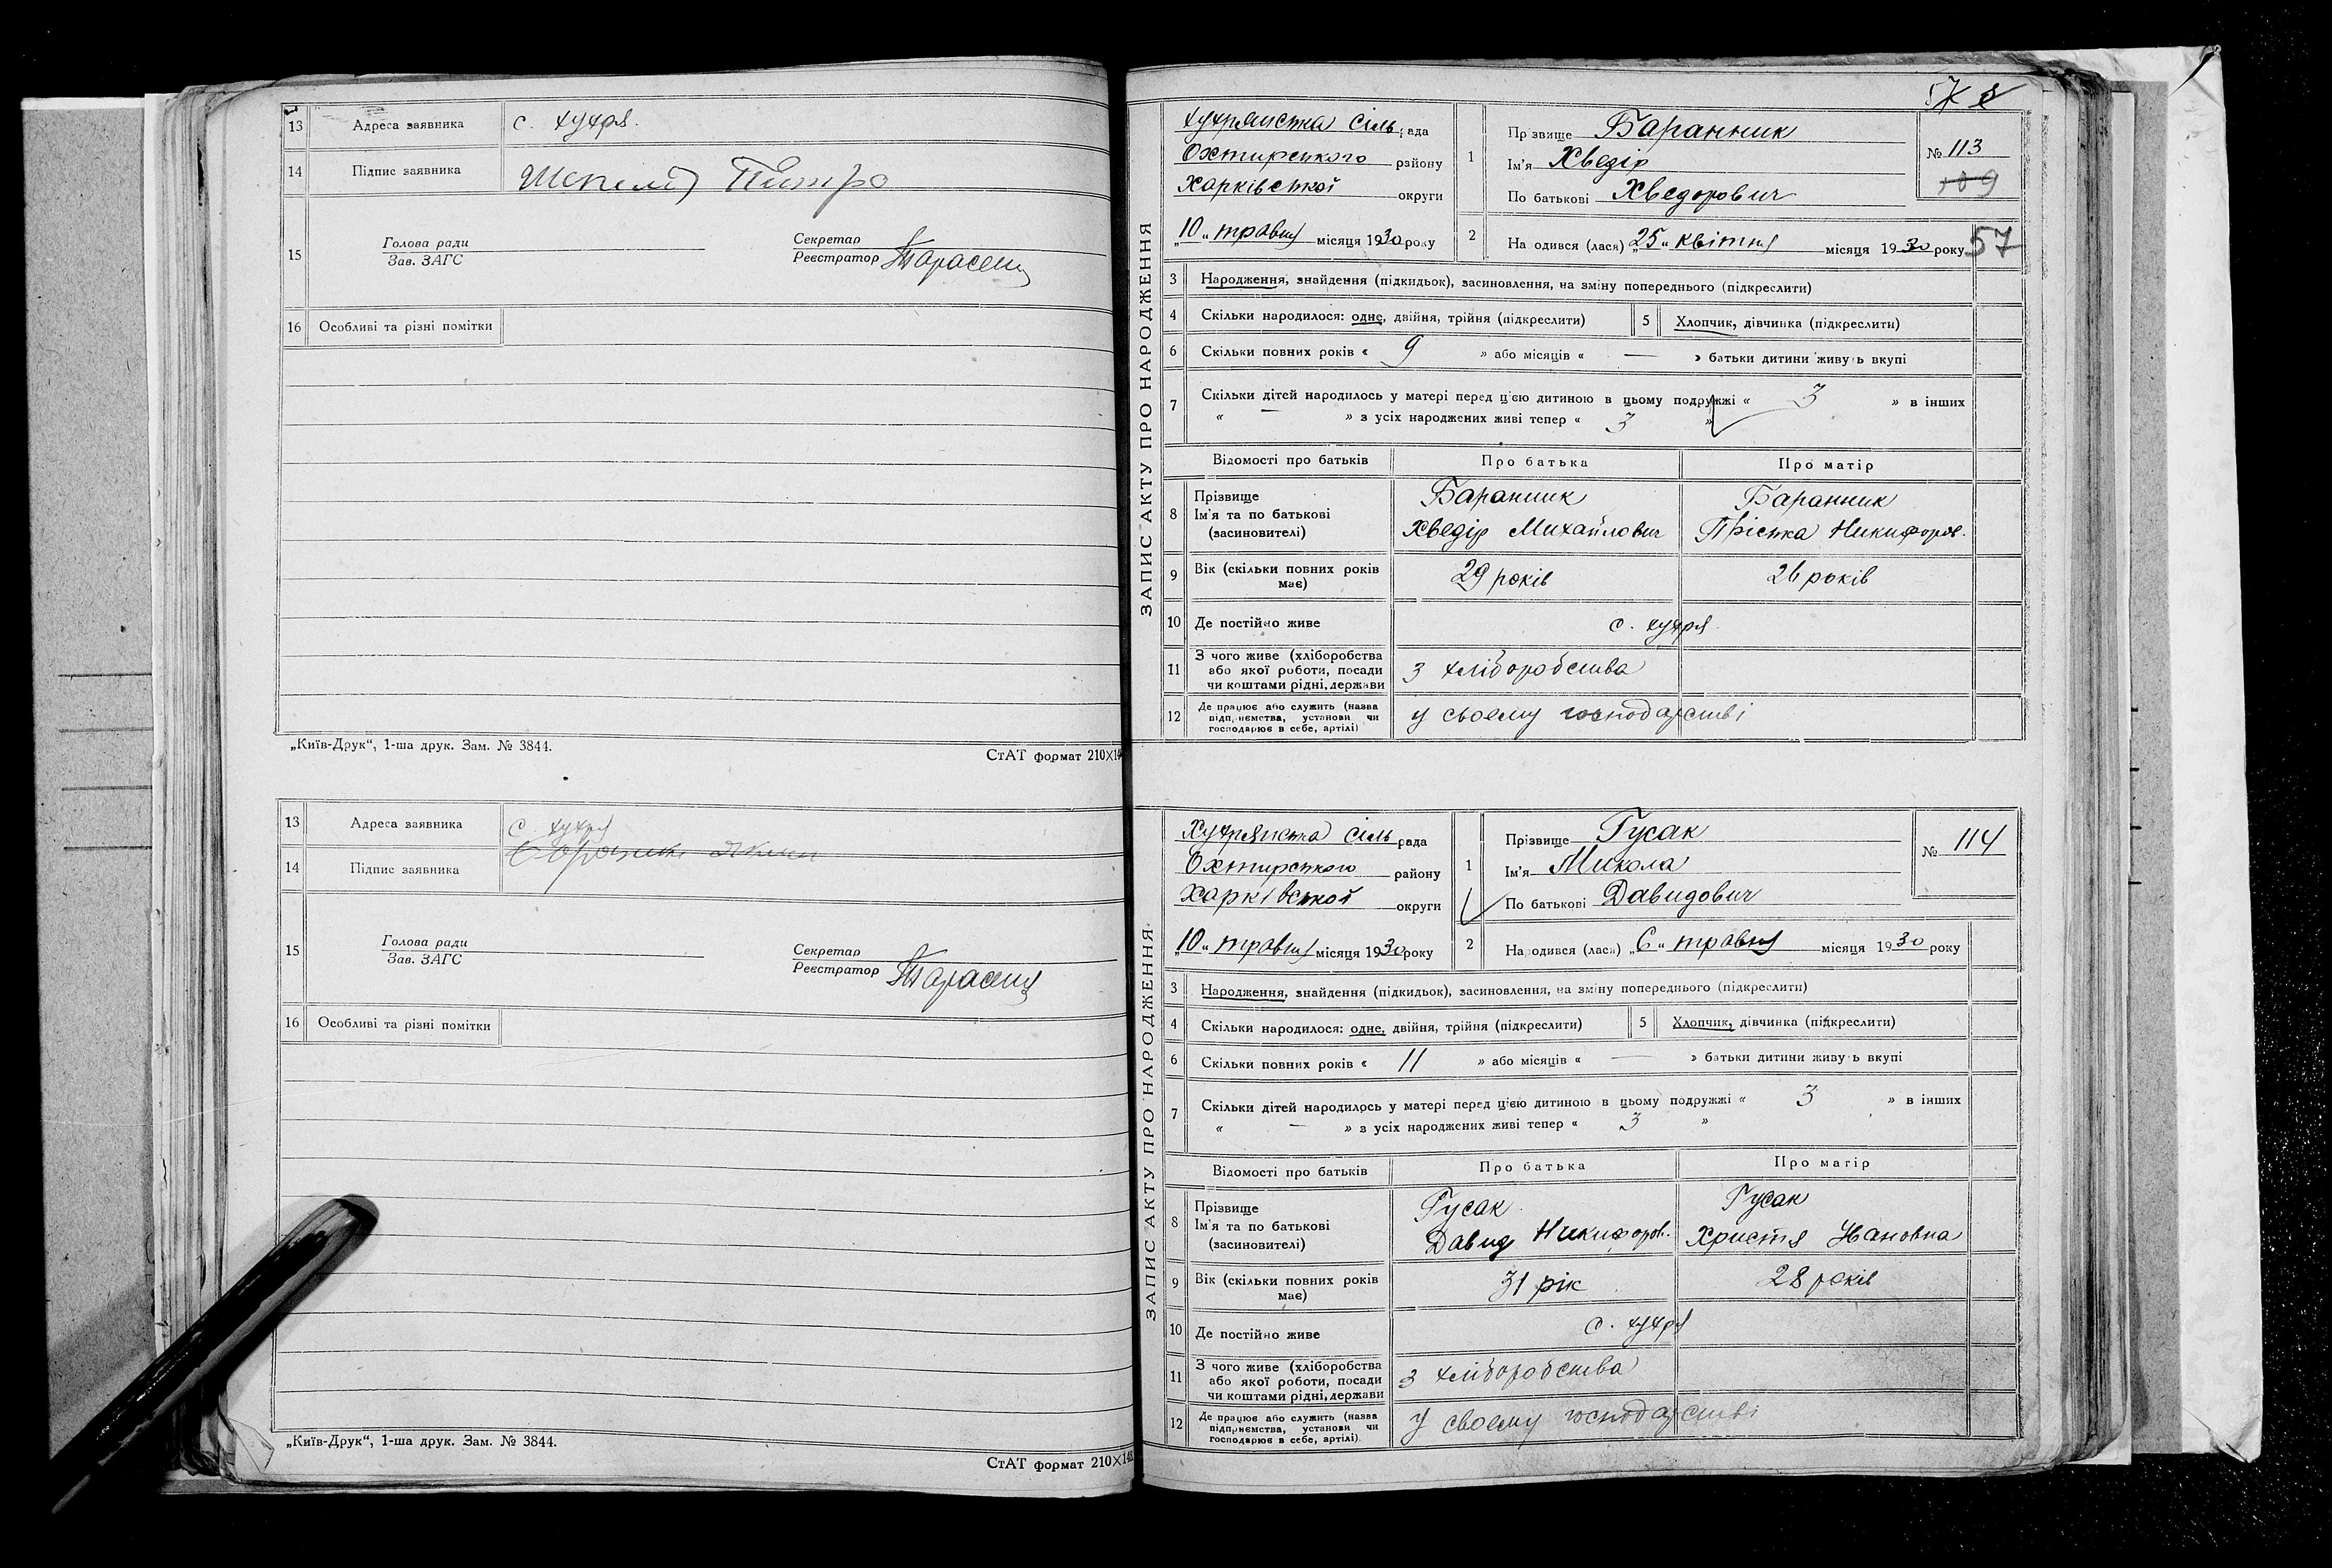 13 Адреса заявника с. хухря.
14 Підпис заявника Петро
15 Голова ради
Зав. ЗАГС
Секретар
Реєстратор Тарасенко
16 Особливі та різні помітки
„Київ-Друк“, 1-ша друк. Зам. № 3844.
СтАТ формат 210×14
13 Адреса заявника с. хухря
14 Підпис заявника
15 Голова ради
Зав. ЗАГС
Секретар
Реєстратор Тарасенко
16 Особливі та різні помітки
„Київ-Друк“, 1-ша друк. Зам. № 3844.
СтАТ формат 210×148
57
ЗАПИС АКТУ ПРО НАРОДЖЕННЯ
Хухрянська сіль рада
Охтирського району
Харківської округи
„10“ травня місяця 1930 року
1 Прізвище Баранник
Ім'я Хведір
По батькові Хведорович
№ 113
109
2 Народився (лася) „25“ квітня місяця 1930 року
57
3 Народження, знайдення (підкидьок), засиновлення, на зміну попереднього (підкреслити)
4 Скільки народилося: одне, двійня, трійня (підкреслити) 5 Хлопчик, дівчинка (підкреслити)
6 Скільки повних років « 9 » або місяців « — » батьки дитини живуть вкупі
7 Скільки дітей народилось у матері перед цією дитиною в цьому подружжі « 3 » в інших
« — » з усіх народжених живі тепер « 3 »
Відомості про батьків Про батька Про матір
8 Прізвище Баранник Баранник
Ім'я та по батькові Хведір Михайлович Прістка Никифоров.
(засиновителі)
9 Вік (скільки повних років має) 29 років 26 років
10 Де постійно живе с. хухря
11 З чого живе (хліборобства
або якої роботи, посади з хліборобства
чи коштами рідні, держави
12 Де працює або служить (назва
підприємства, установи чи у своєму господарстві
господарює в себе, артілі)
ЗАПИС АКТУ ПРО НАРОДЖЕННЯ
Хухрянська сіль рада
Охтирського району
Харківської округи
„10“ травня місяця 1930 року
1 Прізвище Гусак
Ім'я Микола
По батькові Давидович
№ 114
2 Народився (лася) „6“ травня місяця 1930 року
3 Народження, знайдення (підкидьок), засиновлення, на зміну попереднього (підкреслити)
4 Скільки народилося: одне, двійня, трійня (підкреслити) 5 Хлопчик, дівчинка (підкреслити)
6 Скільки повних років « 11 » або місяців « — » батьки дитини живуть вкупі
7 Скільки дітей народилось у матері перед цією дитиною в цьому подружжі « 3 » в інших
« — » з усіх народжених живі тепер « 3 »
Відомості про батьків Про батька Про матір
8 Прізвище Гусак Гусак
Ім'я та по батькові Давид Никифоров. Христя Ивановна
(засиновителі)
9 Вік (скільки повних років має) 31 рік 28 років
10 Де постійно живе с. хухря
11 З чого живе (хліборобства
або якої роботи, посади з хліборобства
чи коштами рідні, держави
12 Де працює або служить (назва
підприємства, установи чи у своєму господарстві
господарює в себе, артілі)